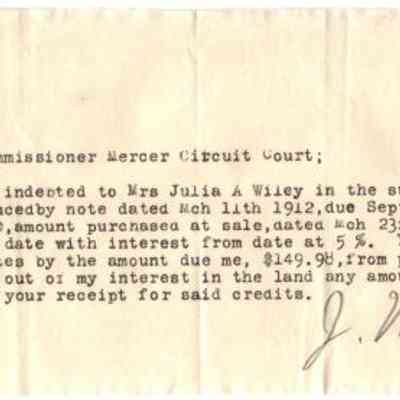 mmissioner Mercer Circuit Court;
indebted to Mrs Julia A Wiley in the su
ncedby note dated Mch 11th 1912,due Sept
,amount purchased at sale,dated Mch 23
date with interest from date at 5 %.
tes by the amount due me, $149.98,from p
out of my interest in the land any amou
your receipt for said credits.
J.